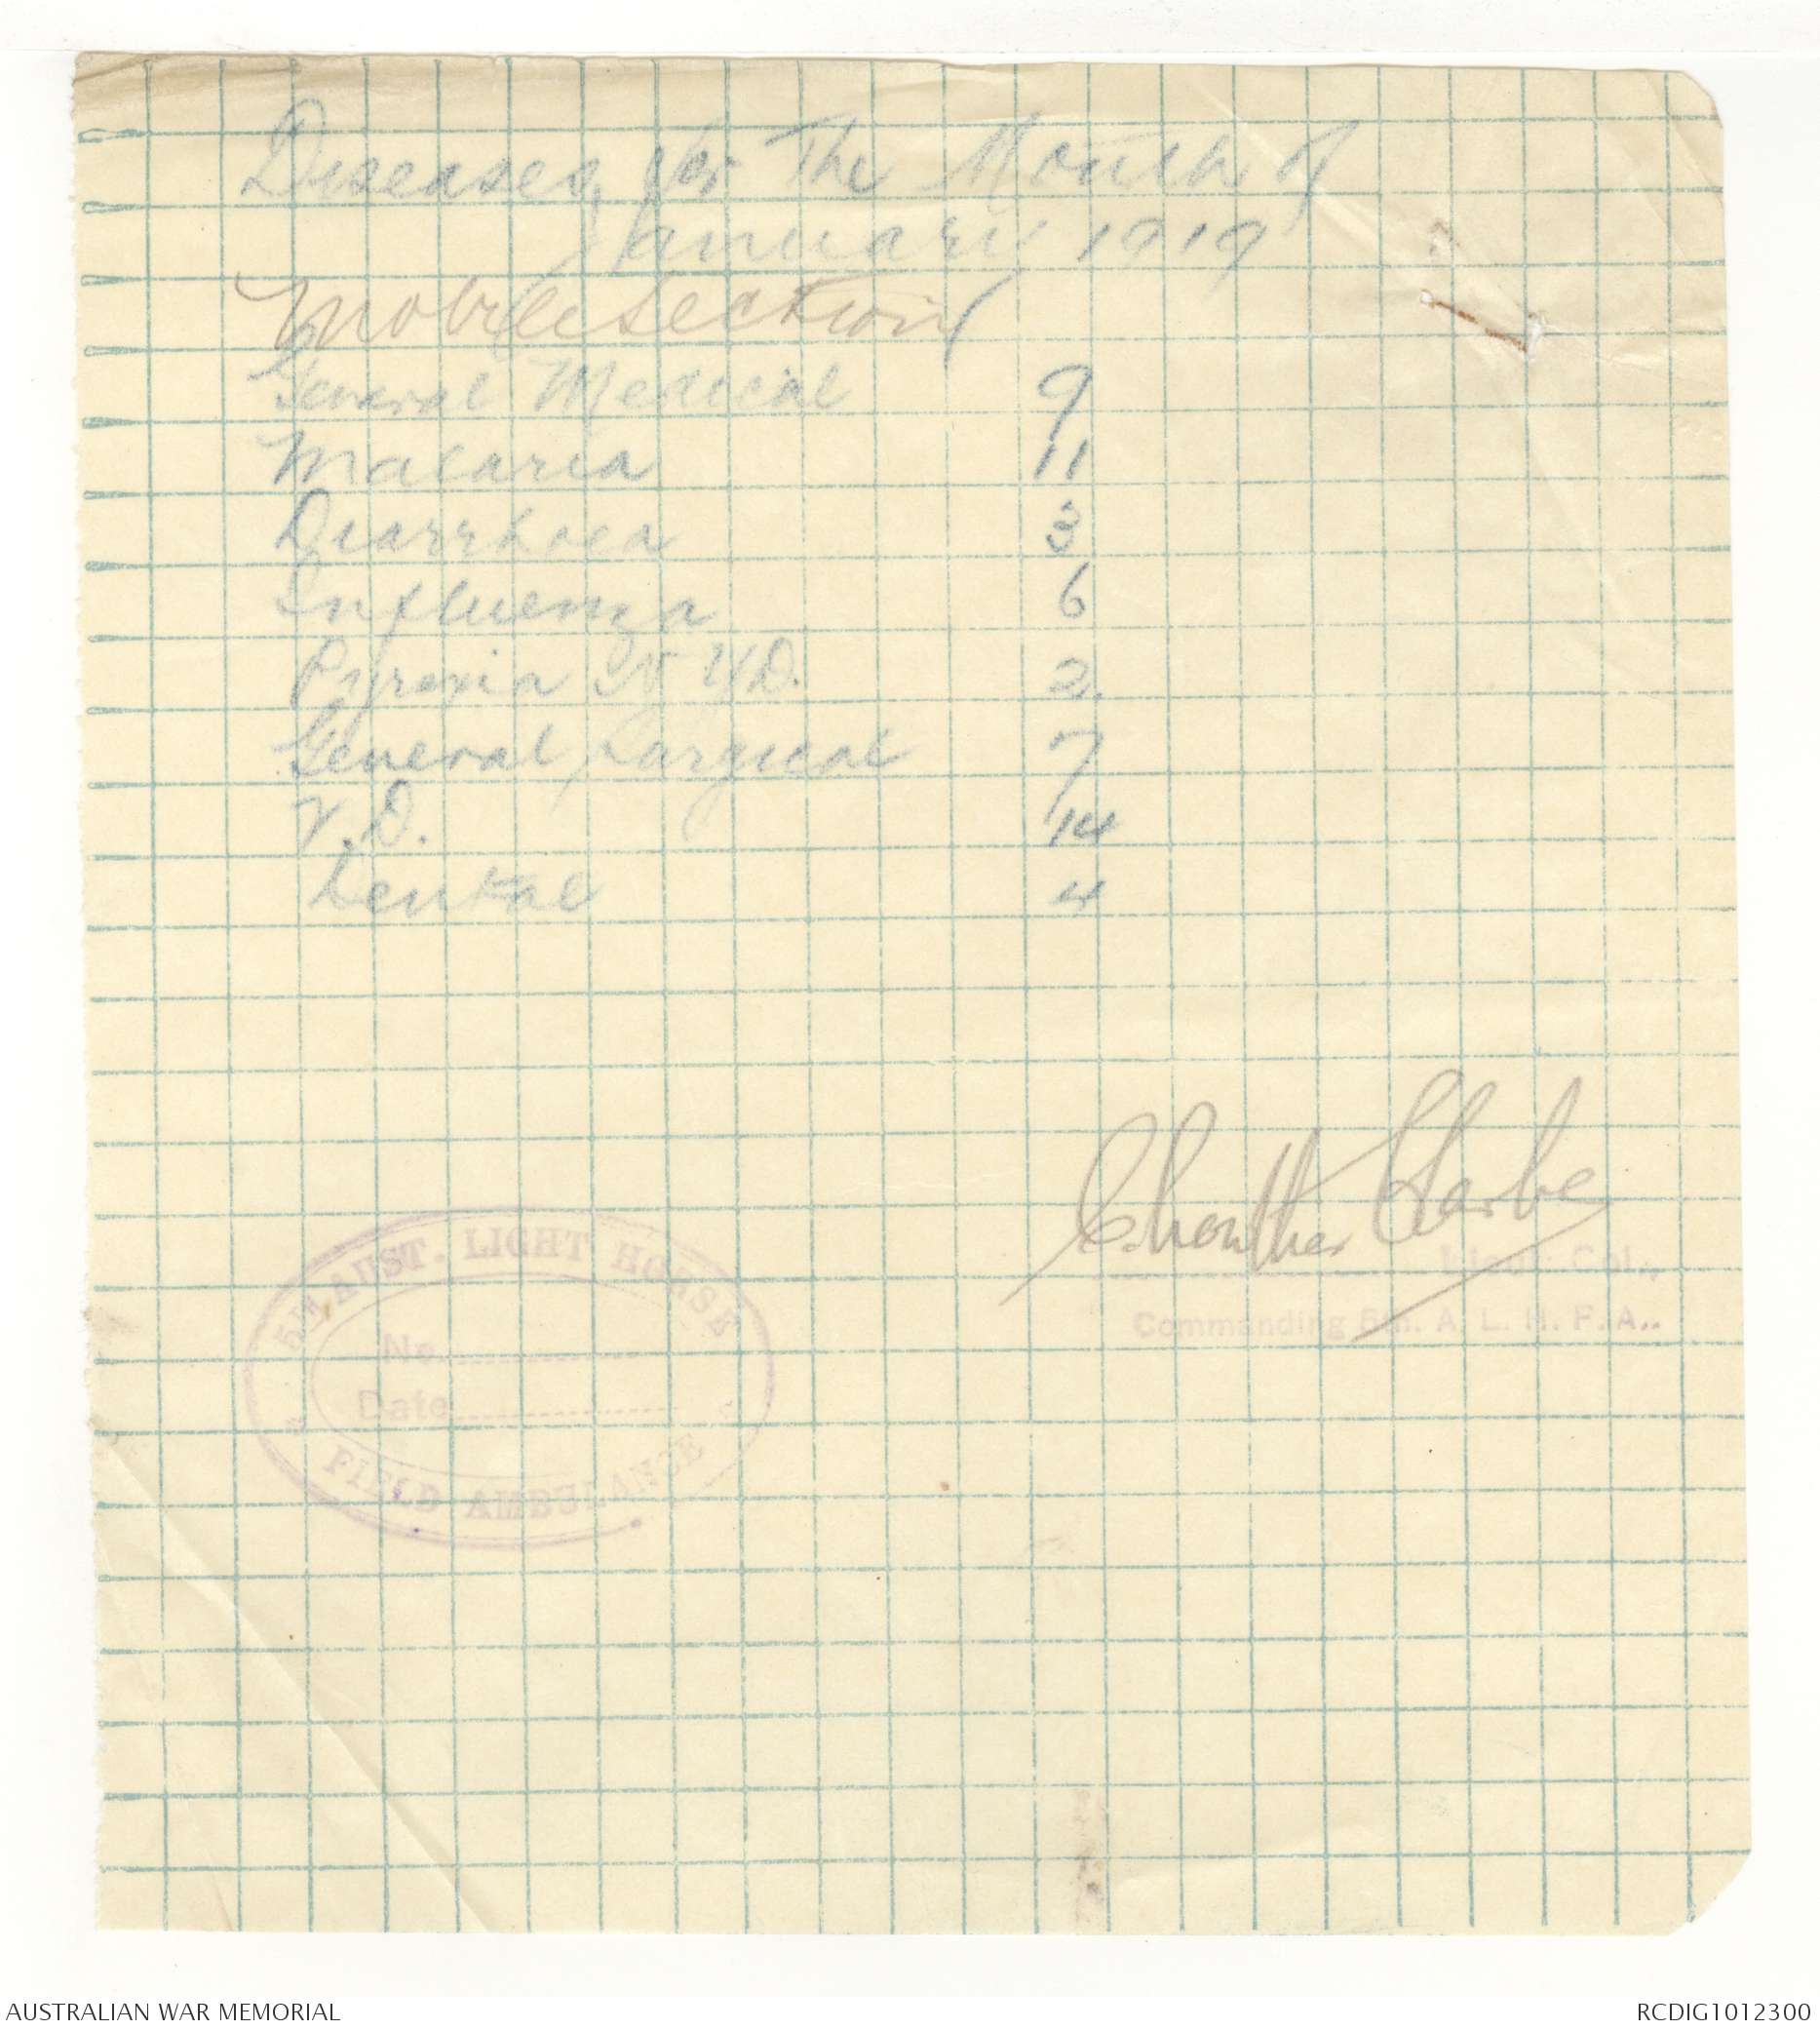 Diseases for The Month of
January 1919
Mobile Section
General Medical 9
Malaria 11
Diarrhoea 3
Influenza 6
Pyrexia N.Y.D. 2.
General Surgical 7
V.D. 14
Dental 4
Lieut. Col.,
Commanding 5th. A. L. H. F. A..
5TH AUST. LIGHT HORSE
No.
Date
FIELD AMBULANCE
AUSTRALIAN WAR MEMORIAL
RCDIG1012300